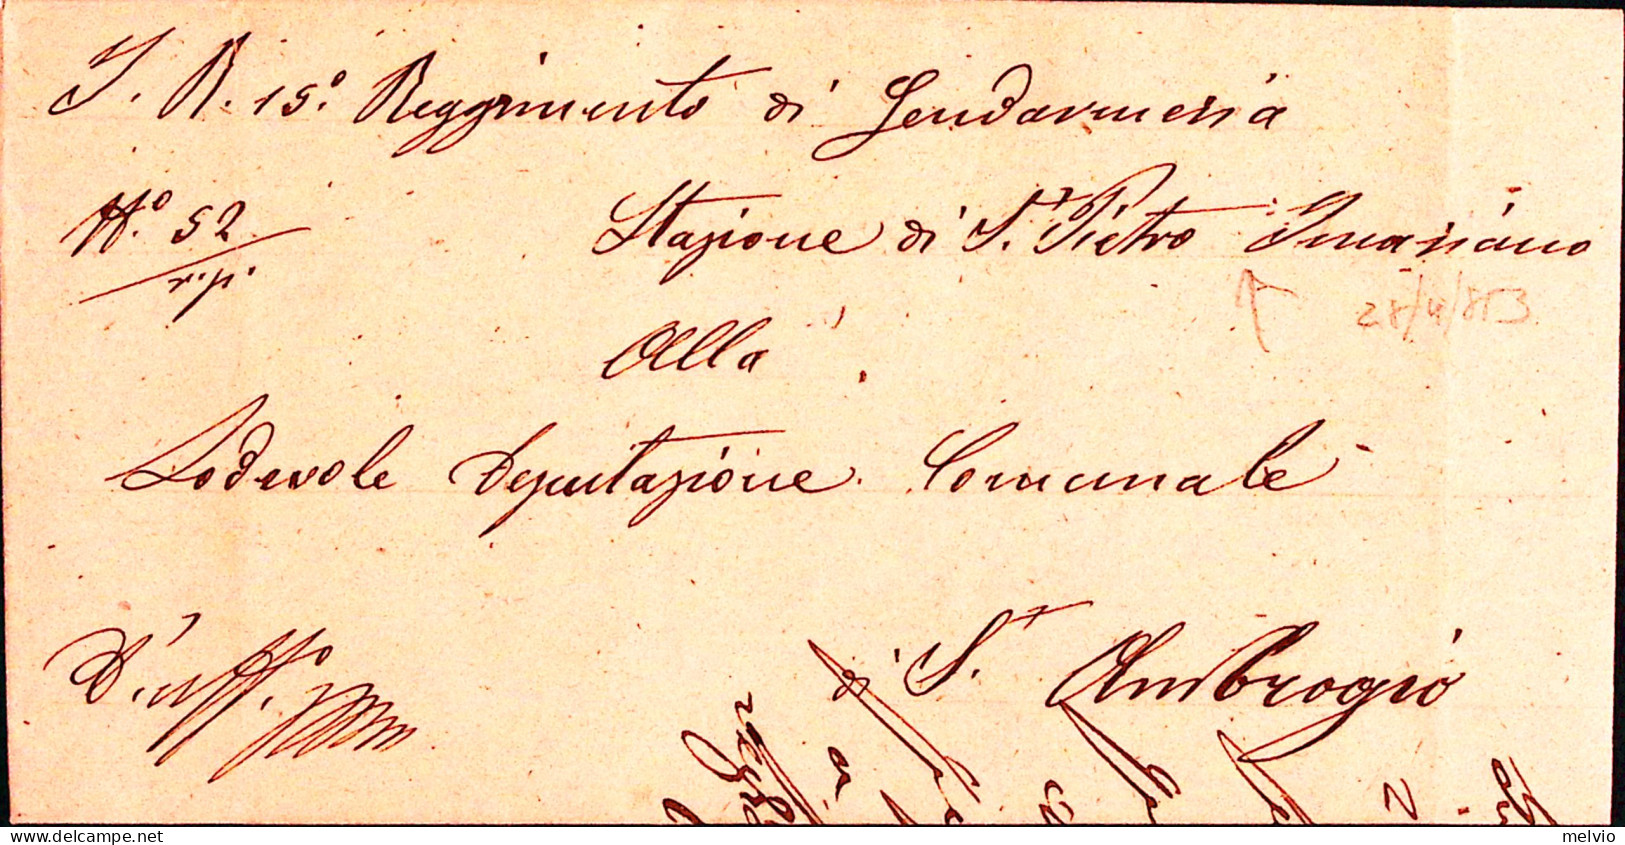 I. R. 15.° Reggimento di Gendarmeria
N.° 52
r.p.
Stazione di S.t Pietro Incariano
28/4/853
Alla
Lodevole Deputazione Comunale
di S.t Ambrogio
D'uff.o
melvio